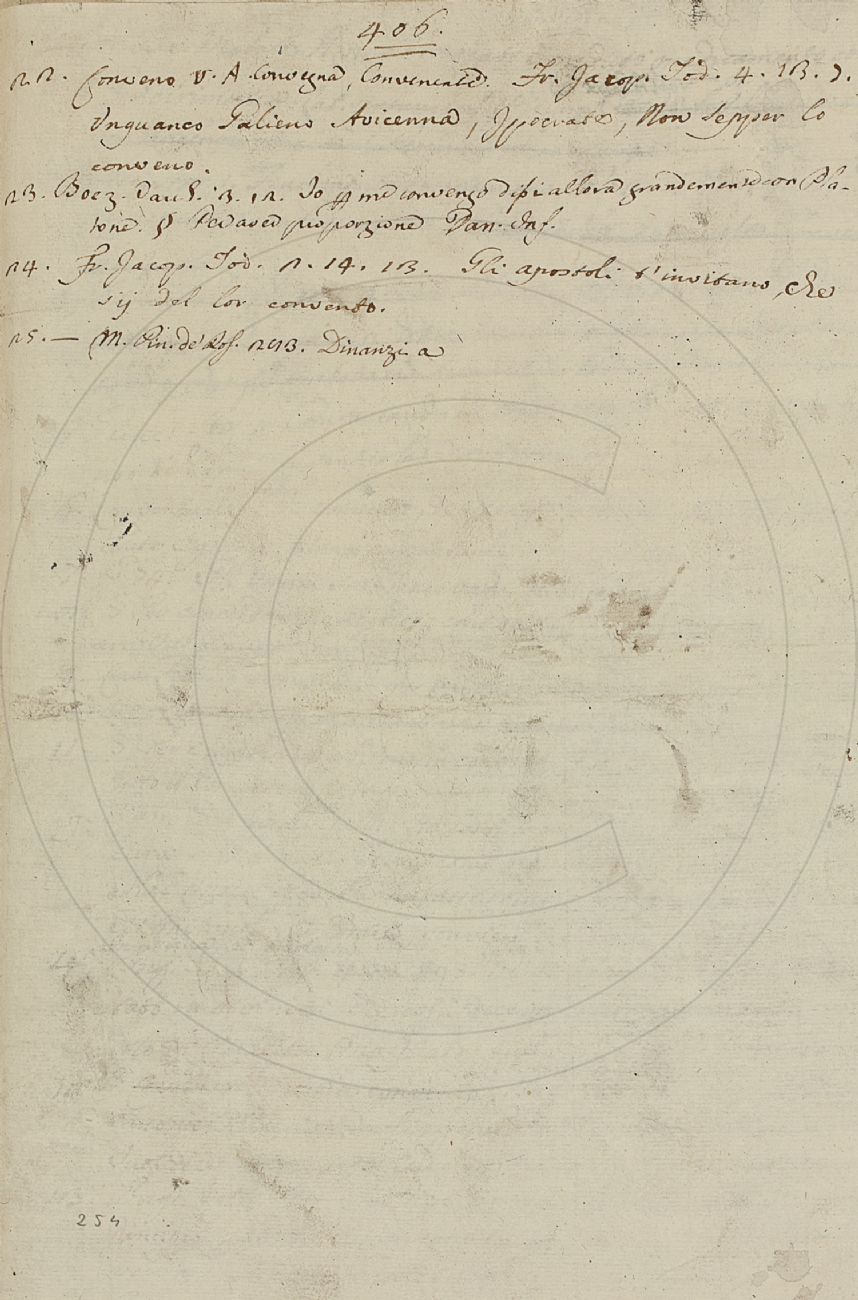 406.
22. Conveno v. A Convegna, Convenente. Fr. Jacop. Tod. 4. 13. 7.
Unquanco Galieno Avicenna, Ipocrate, Non sepper lo
conveno.
23. Boez. Varch. 3. 12. Io me convengo dissi allora grandemente con Pla-
tone. § Per aver proporzione Dan. Inf.
24. Fr. Jacop. Tod. 2. 14. 13. Gli apostoli t'invitano, che
sij del lor convento.
25. — M. Din. de' 293. Dinanzi a
254